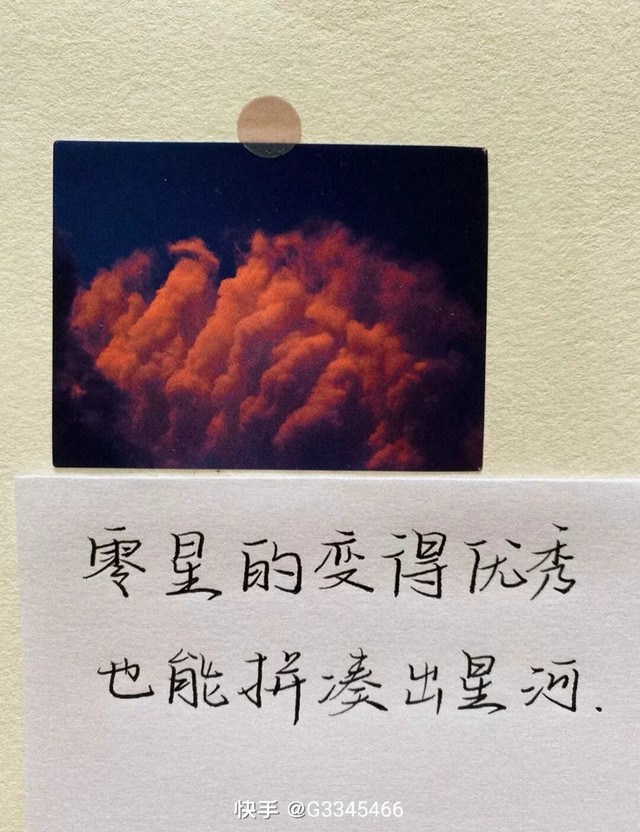 零星的变得优秀
也能拼凑出星河.
快手 @G3345466